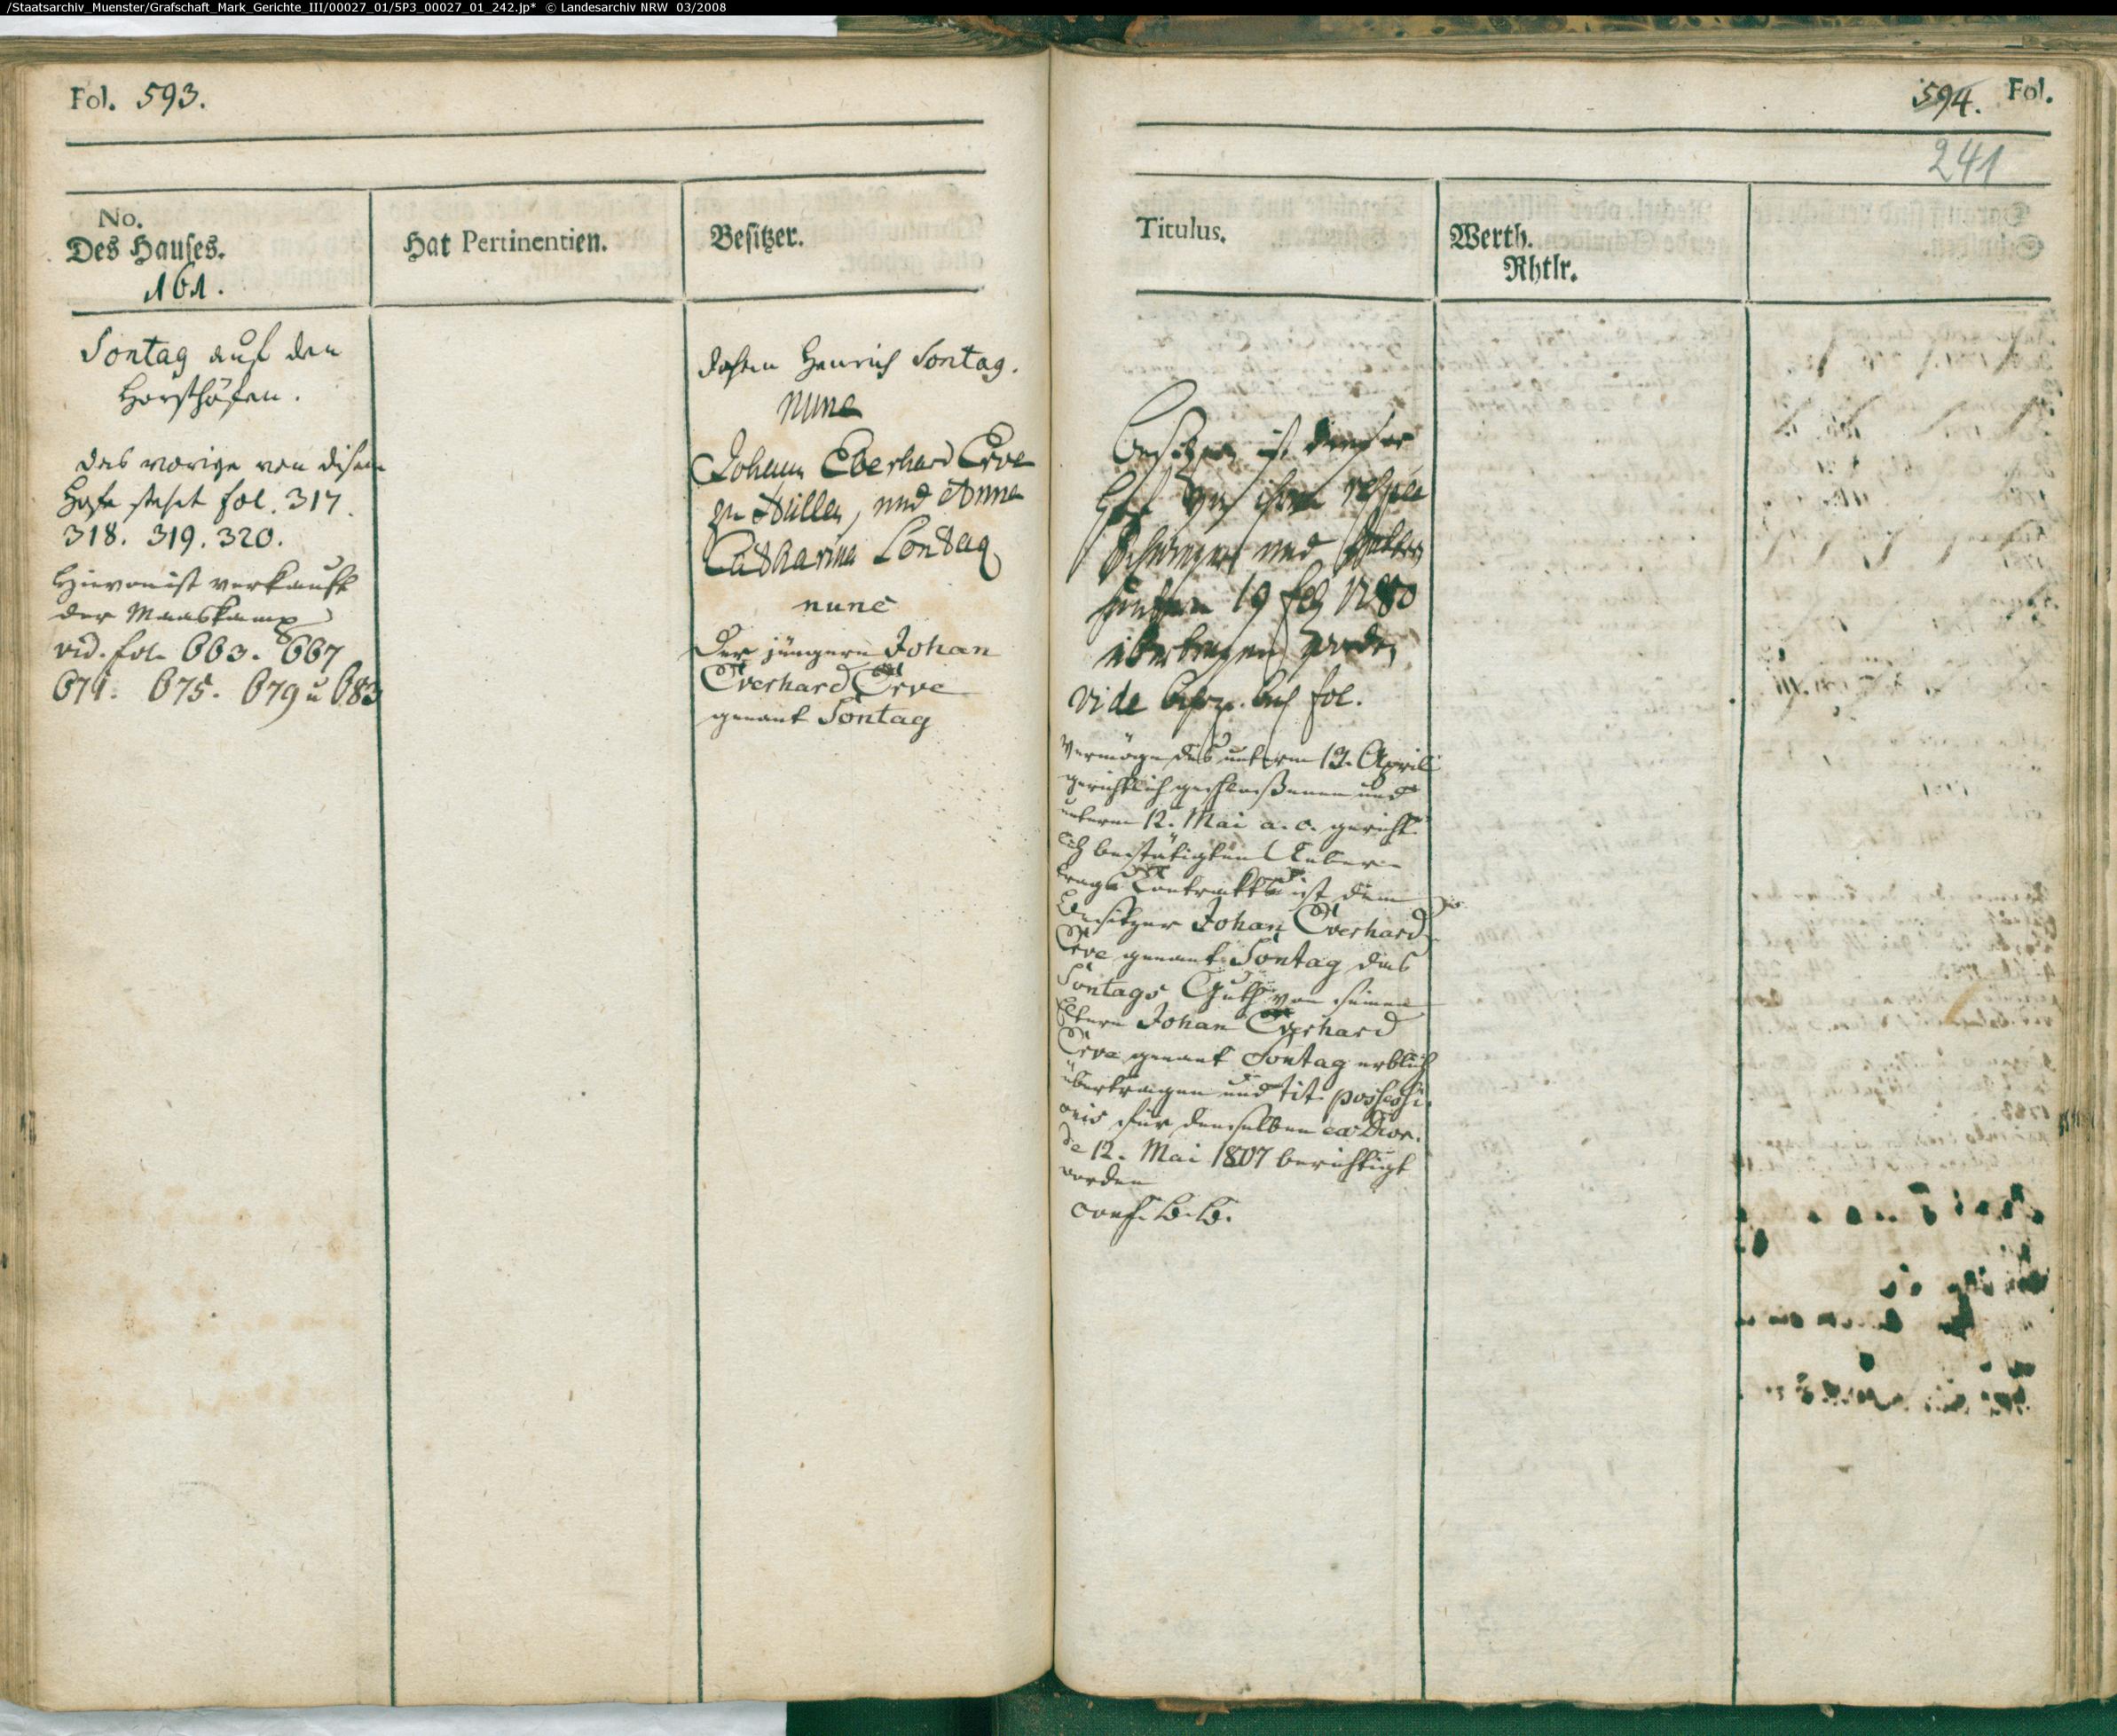 /Staatsarchiv_Muenster/Grafschaft_Mark_Gerichte_III/00027_01/5P3_00027_01_242.jp* © Landesarchiv NRW 03/2008
Fol. 593.
No.
Des Hauses.
161.
Hat Pertinentien.
Besitzer.
Sontag auf den
Horsthöfen.
das vorige von disem
Hofe stehet fol. 317.
318. 319. 320.
Hievon ist verkauft
der Maaskamp
vid. fol. 663. 667
671. 675. 679 u 683
Henrich Sontag.
nunc
Johann Eberhard Erve
zu Hüllen, und Anna
Catharina Sontag
nunc
Der jüngere Johan
Everhard Erve
genant Sontag
594. Fol.
241
Titulus.
Werth.
Rhtlr.
ist dieser
Hof von ihren
Schwieger und
19 1780
übertragen worden
vide buch fol.
Vermöge des unterm 12. April
gerichtlich geschloßenen und
unterm 12. Mai a. c. gericht-
lich bestätigten Ueber-
trags Contrakts ist dem
Besitzer Johan Everhard
Erve genant Sontag das
Sontags Guth von seinen
Eltern Johan Everhard
Erve genant Sontag erblich
übertragen und tit. possessi-
onis für denselben ex Decr.
de 12. Mai 1807 berichtigt
worden
conf. B. B.